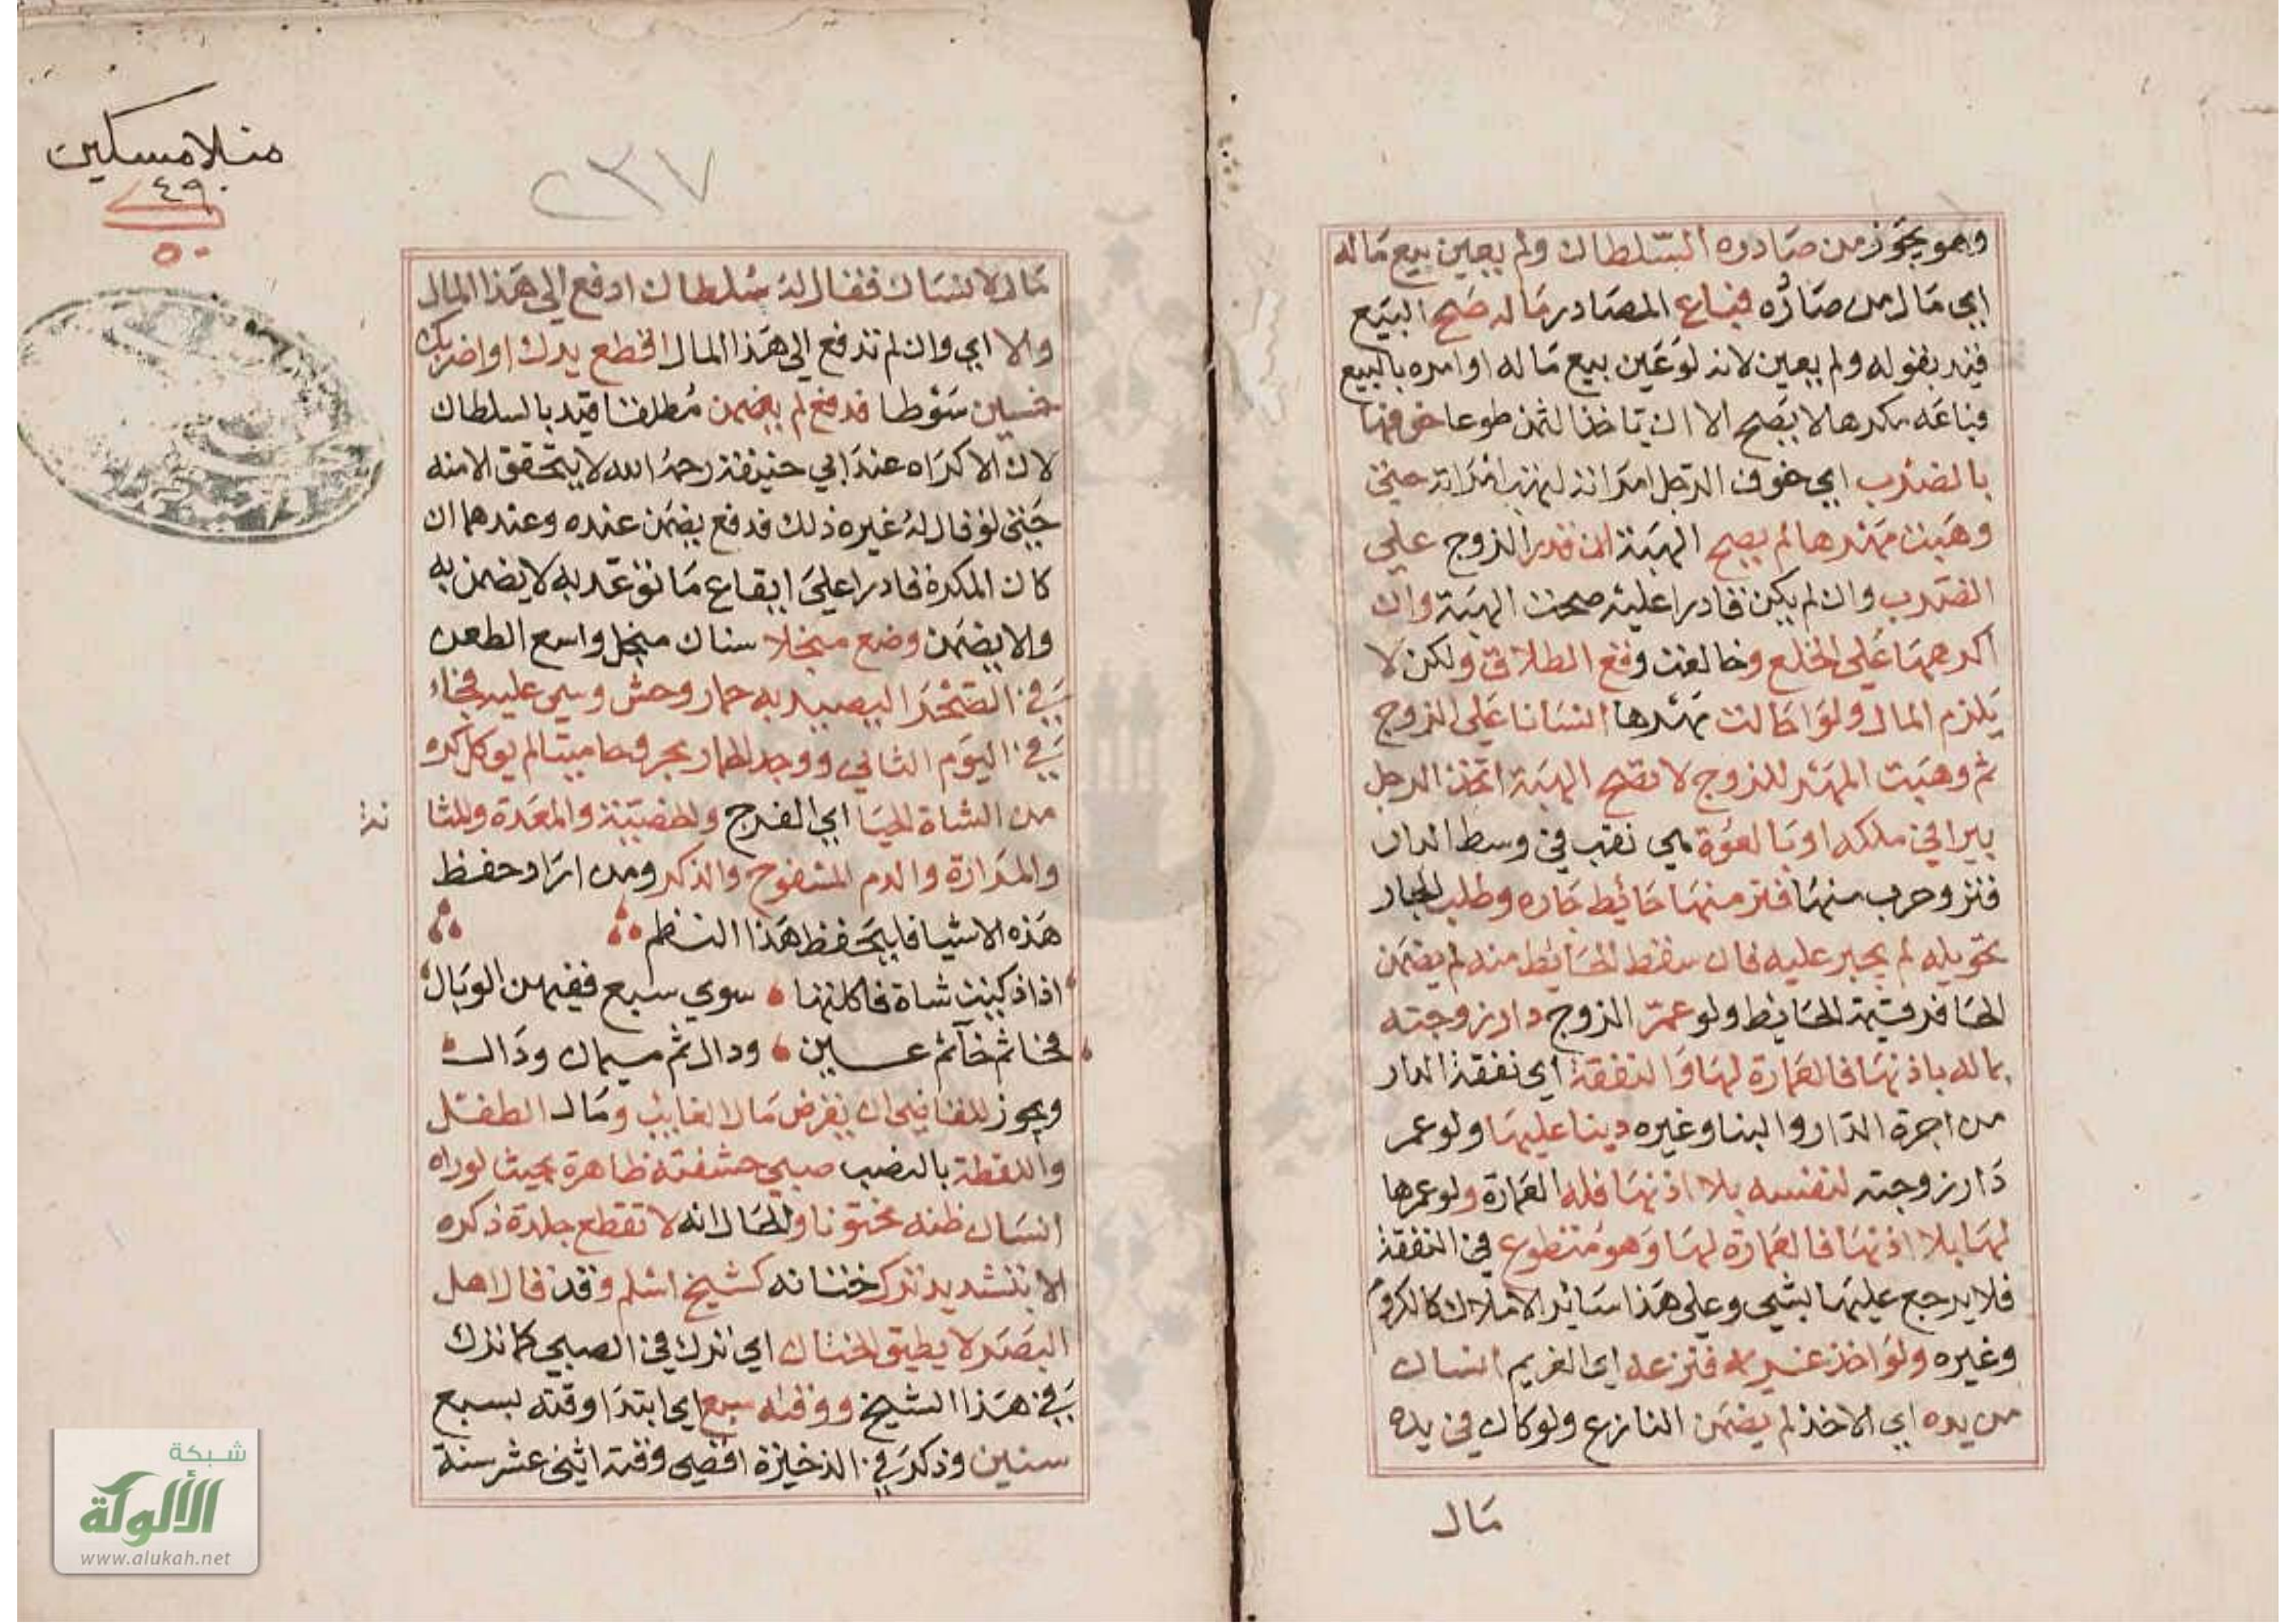 وهو يجوز من صادره السلطان ولم يعين بيع ماله
ايي مال من صادره فباع المصادر ماله صح البيع
قيد بقوله ولم يعين لانه لو عين بيع ماله او امره بالبيع
فباعه مكرها لا يصح الا ان ياخذ الثمن طوعا خوفها
بالضرب ايي خوف الرجل امراته لتهب امراته حتي
وهبت مهرها لم يصح الهبة ان قدر الزوج علي
الضرب وان لم يكن قادرا عليه صحت الهبة وان
اكرهها علي الخلع وخالعت وقع الطلاق ولكن لا
يلزم المال ولو احالت بمهرها انسانا علي الزوج
ثم وهبت المهر للزوج لا تصح الهبة اتخذ الرجل
بيرا في ملكه او بالعوة هي نقب في وسط الدار
فنز وخرب منها فنز منها حائط جاره وطلب الجار
تحويله لم يجبر عليه فان سقط الحايط منه لم يضمن
الحافر قيمة الحايط ولو عمر الزوج دار زوجته
بماله باذنها فالعمارة لها والنفقة ايي نفقة الدار
من اجرة الدار والبنا وغيره دينا عليها ولو عمر
دار زوجته لنفسه بلا اذنها فله العمارة ولو عمرها
لها بلا اذنها فالعمارة لها وهو متطوع في النفقة
فلا يرجع عليها بشي وعلي هذا سائر الاملاك كالكروم
وغيره ولو اخذ غريمه فنزعه ايي الغريم انسان
من يده ايي الاخذ لم يضمن النازع ولو كان في يده
مال
منلا مسكين
٤٩
٥٠
٢٣٧
مال لانسان فقال له سلطان ادفع الي هذا المال
والا ايي وان لم تدفع الي هذا المال اقطع يدك او اضربك
خمسين سوطا فدفع لم يضمن مطلقا قيد بالسلطان
لان الاكراه عند ابي حنيفة رحمه الله لا يتحقق الا منه
حتي لو قال له غيره ذلك فدفع يضمن عنده وعندهما ان
كان المكره قادرا علي ايقاع ما توعد به لا يضمن به
والا يضمن وضع منجلا سنان منجل واسع الطعن
في الصحرا ليصيد به حمار وحش وسمي عليه فجاء
في اليوم الثاني ووجد الحمار مجروحا ميتا لم يوكل كره
من الشاة الحيا ايي الفرج والخصية والغدة والمثا
نة
والمرارة والدم المسفوح والذكر ومن اراد حفظ
هذه الاشيا فليحفظ هذا النظم
اذا ذكيت شاة فاكلتها سوي سبع ففيهن الوبال
فخاثم خآثم عسين ودال ثم ميمان وذال
ويجوز للقاضي ان يقرض مال الغايب ومال الطفل
واللقطة بالنصب صبي حشفته ظاهرة بحيث لو راه
انسان ظنه مختونا والحال انه لا تقطع جلدة ذكره
الا بتشديد ترك ختانه كشيخ اسلم وقد قال اهل
البصر لا يطيق الختان ايي ترك في الصبي كما ترك
في هذا الشيخ ووقته سبع ايي ابتدا وقته لسبع
سنين وذكر في الذخيرة اقصي وقته اثني عشر سنة
شبكة
الألوكة
www.alukah.net